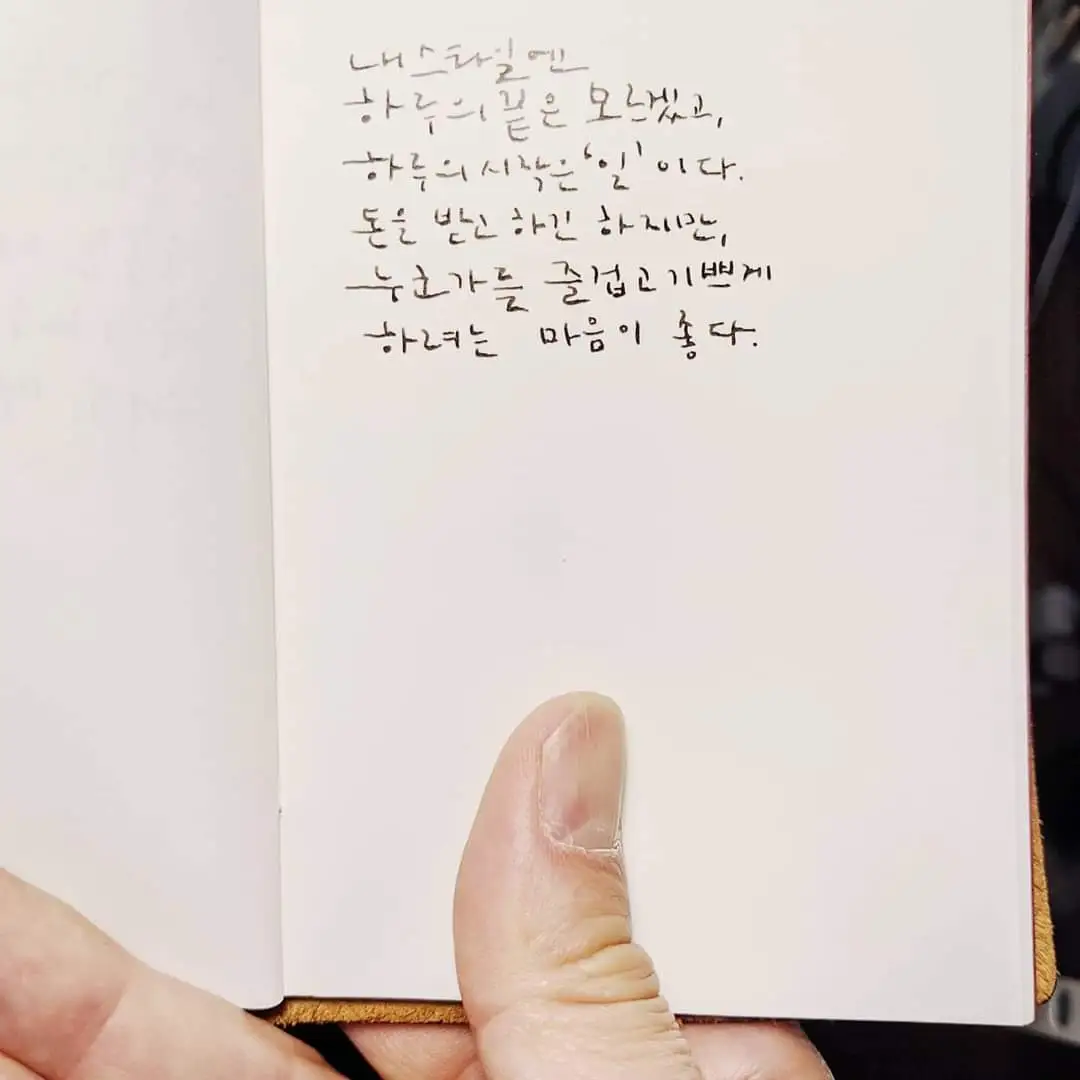 내 스타일엔
하루의 끝은 모르겠고,
하루의 시작은 '일' 이다.
돈을 받고 하긴 하지만,
누군가를 즐겁고 기쁘게
하려는 마음이 좋다.